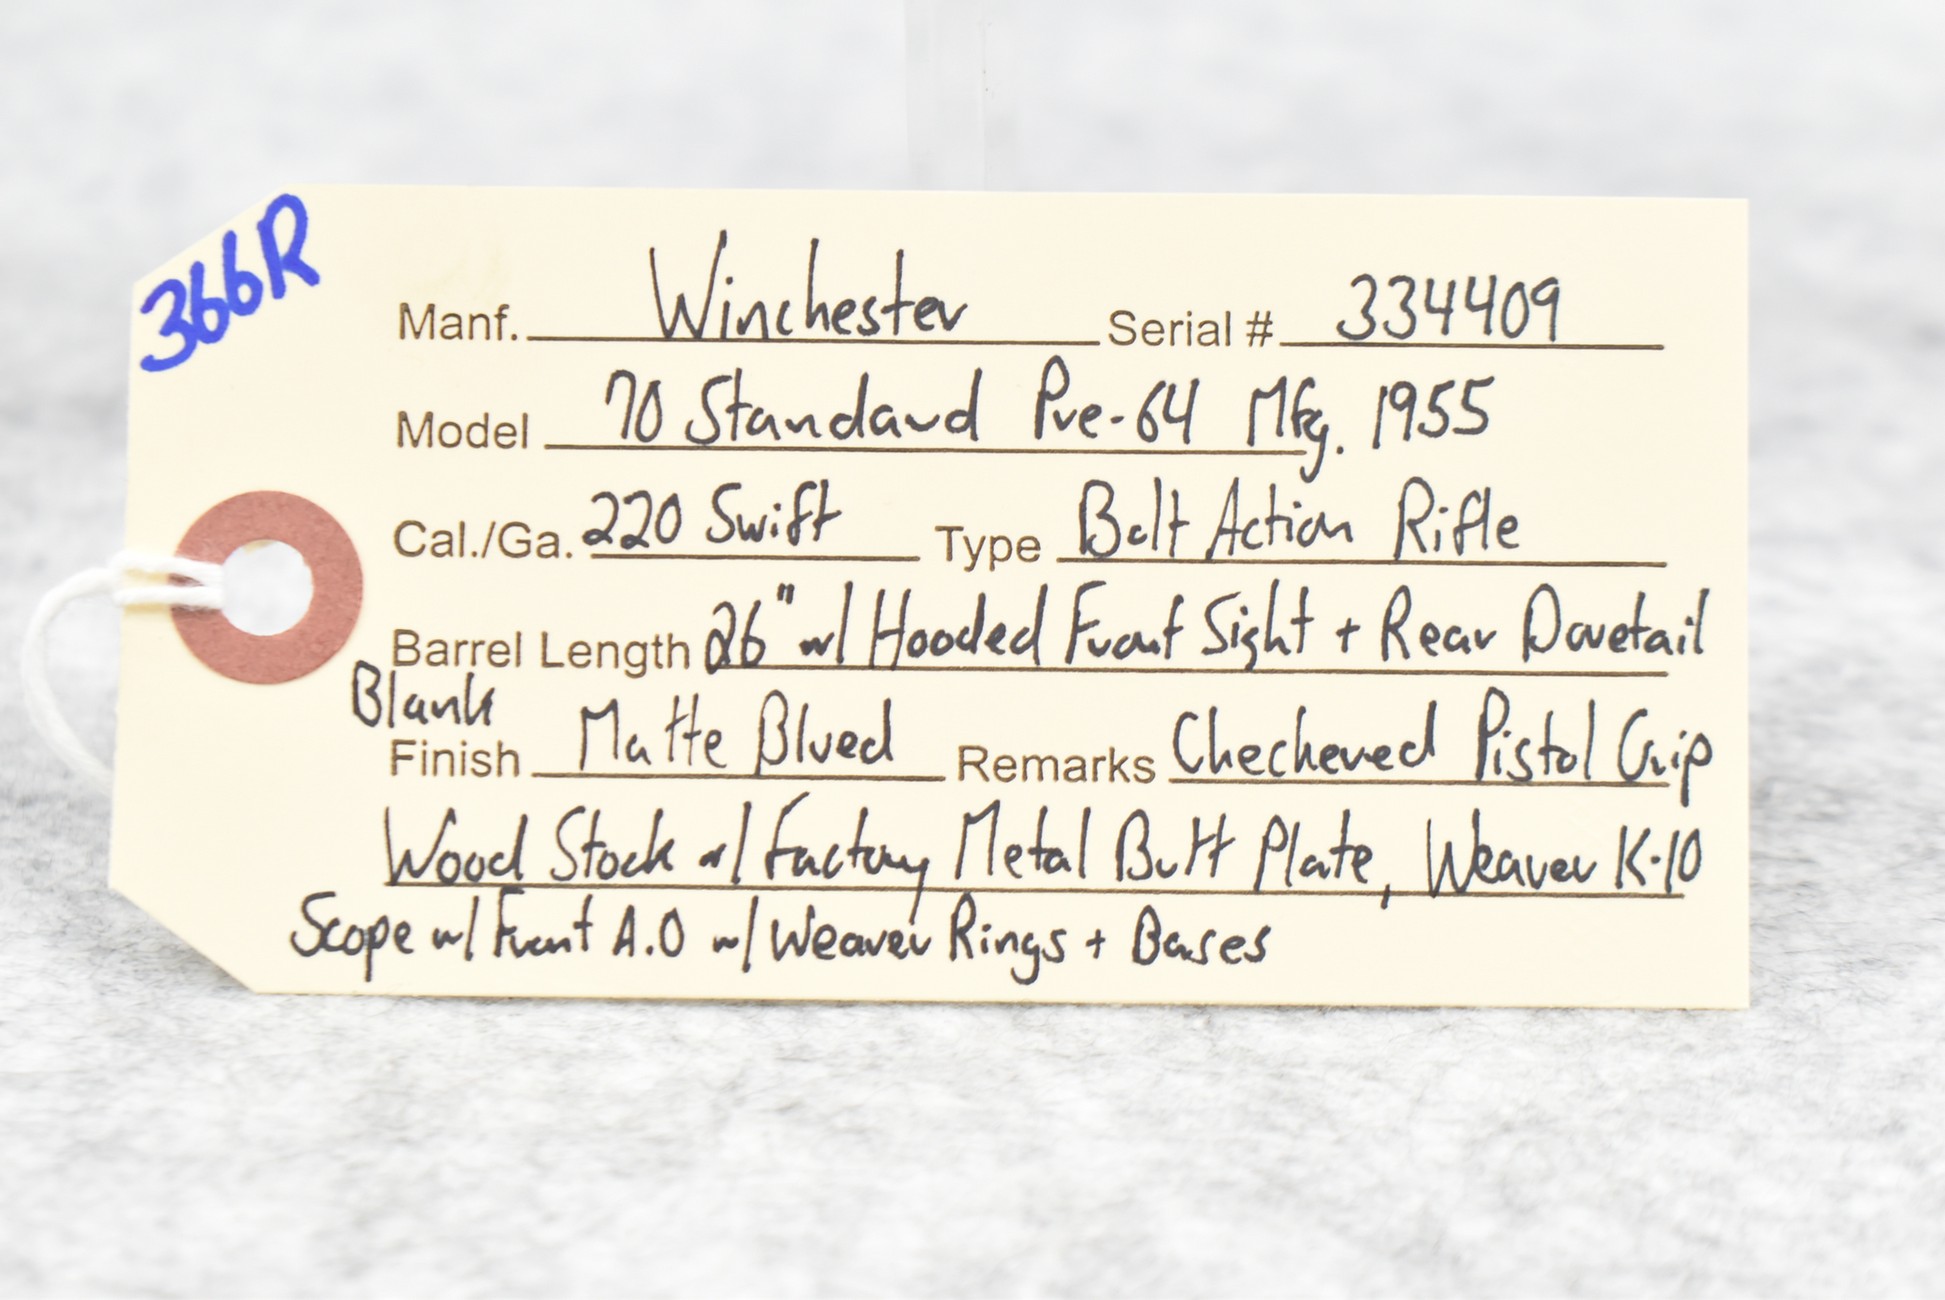 366R
Manf. Winchester Serial # 334409
Model 70 Standard Pre-64 Mfg. 1955
Cal./Ga. 220 Swift Type Bolt Action Rifle
Barrel Length 26" w/ Hooded Front Sight + Rear Dovetail
Blank
Finish Matte Blued Remarks Checkered Pistol Grip
Wood Stock w/ Factory Metal Butt Plate, Weaver K-10
Scope w/ Front A.O w/ Weaver Rings + Bases